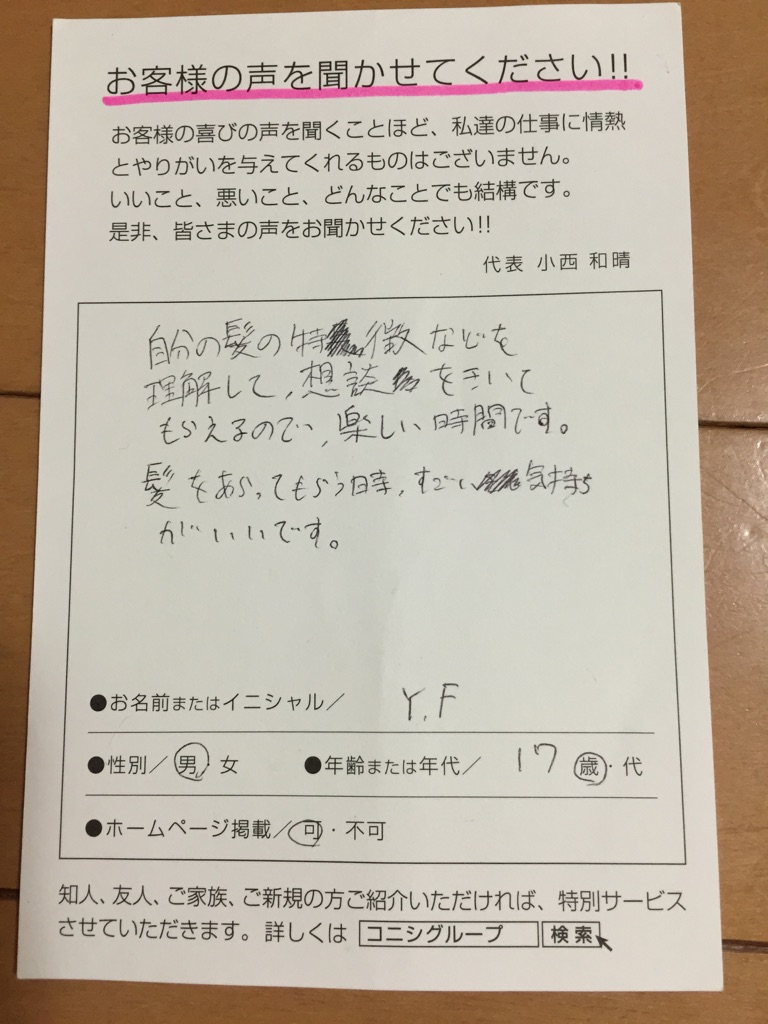 お客様の声を聞かせてください!!
お客様の喜びの声を聞くことほど、私達の仕事に情熱
とやりがいを与えてくれるものはございません。
いいこと、悪いこと、どんなことでも結構です。
是非、皆さまの声をお聞かせください!!
代表 小西 和晴
自分の髪の特徴などを
理解して、想談をきいて
もらえるので、楽しい時間です。
髪をあらってもらう時、すごい気持ち
がいいです。
●お名前またはイニシャル/ Y.F
●性別/男・女 ●年齢または年代/ 17 歳・代
●ホームページ掲載/可・不可
知人、友人、ご家族、ご新規の方ご紹介いただければ、特別サービス
させていただきます。詳しくは コニシグループ 検索